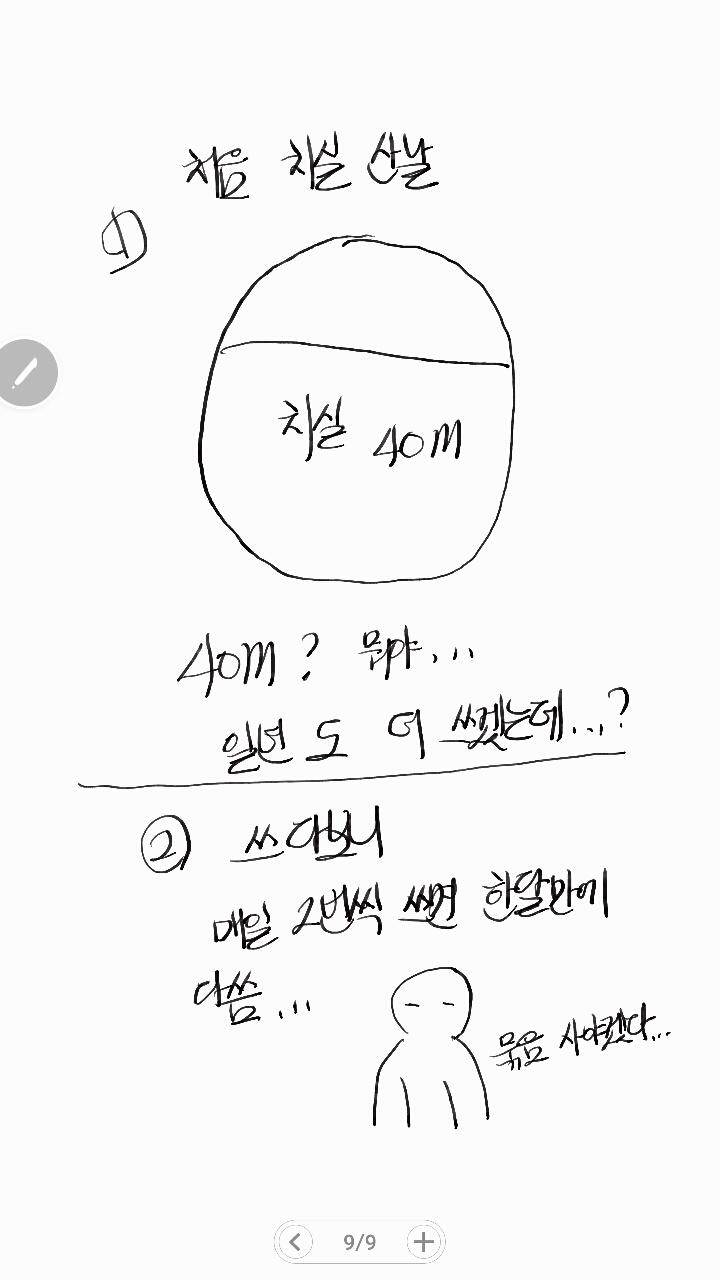 처음 치실 산날
①
치실 40m
40m? 뭐야...
일년도 더 쓰겠는데...?
② 쓰다보니
매일 2번씩 쓰면 한달만에
다씀...
묶음 사야겠다...
9/9